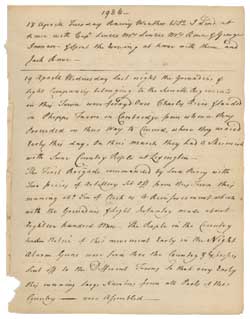 18 Aprill Tuesday Rainy Weather I Dind at
home with Capt Linzee Mrs Linzee Mrs Rowe & George
Inman & Spent the Evening at home with them and
Jack Rowe —
19 Aprill Wednesday last night the Grenadiers &
light Companys belonging to the Severall Regiments
in this Town were ferry'd Over Charles River & landed
on Phipps Farm in Cambridge from whence they
Proceeded on their Way to Concord, where they arrived
Early this day. On their march they had a Skirmish
with Some Country People at Lexington —
The First Brigade commanded by Lord Percy with
Two pieces of Artillery Set Off from this
morning abt Ten of Clock as a Reinforcement which
with the Grenadiers & light Infantry made about
Eighteen hundred Men. The People in the Country
had Notice of this movement Early in the Night
Alarm Guns were fired thro the Country & Expresses
Sent off to the Different Towns so that very Early
this morning large Numbers from all Parts of the
Country — were assembled —